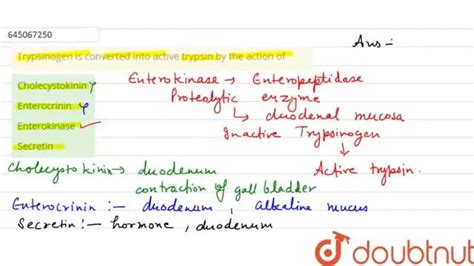 645067250
Ans :-
Trypsinogen is converted into active trypsin by the action of
Cholecystokinin
Enterocrinin
Enterokinase ✓
Secretin
Enterokinase → Enteropeptidase
Proteolytic enzyme
↳ duodenal mucosa
Inactive Trypsinogen
↓
Active trypsin.
Cholecystokinin → duodenum
contraction of gall bladder
Enterocrinin :- duodenum, alkaline mucus
Secretin :- hormone, duodenum
doubtnut